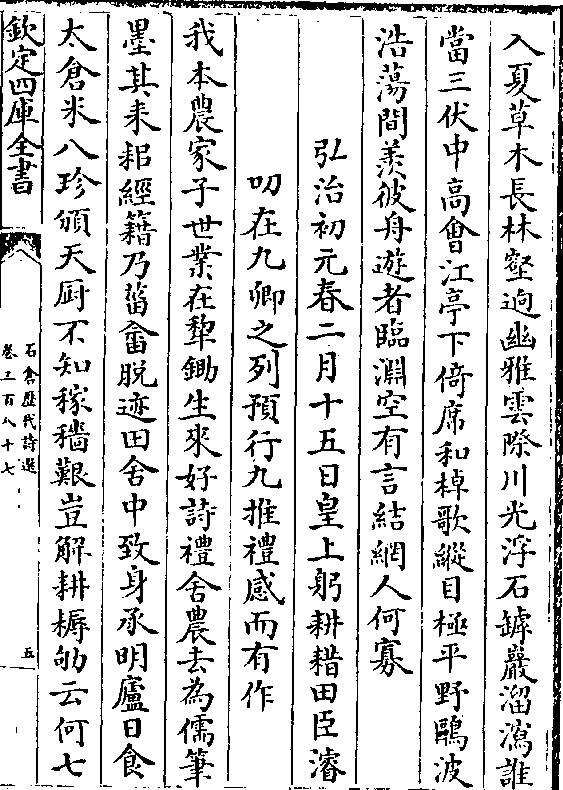 入夏草木長林壑逈幽雅雲際川光浮石罅巖溜瀉誰
當三伏中高會江亭下倚席和棹歌縱目極平野鷗波
浩蕩間羨彼舟遊者臨淵空有言結網人何寡
弘治初元春二月十五日皇上躬耕耤田臣濬
叨在九卿之列預行九推禮感而有作
我本農家子世業在犂鋤生來好詩禮舍農去為儒筆
墨其耒耜經籍乃菑畬脱迹田舍中致身承明廬日食
太倉米八珍頒天厨不知稼穡艱豈解耕槈劬云何七
欽定四庫全書
石倉歷代詩選
卷三百八十七
五